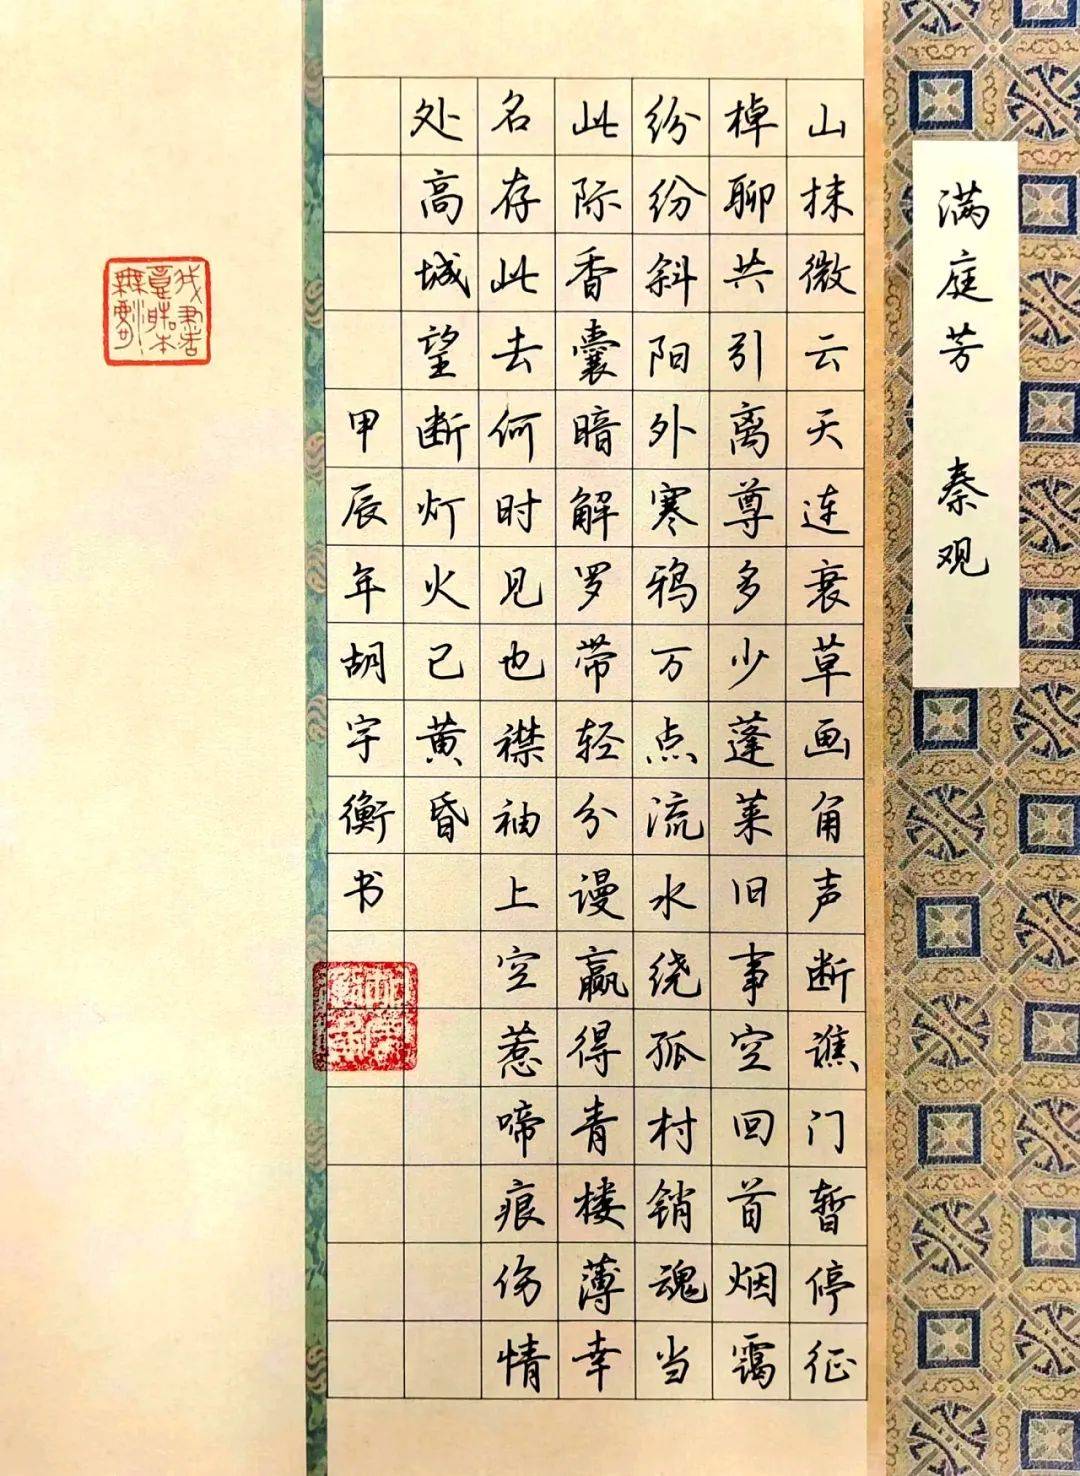 满庭芳 秦观
山抹微云天连衰草画角声断谯门暂停征
棹聊共引离尊多少蓬莱旧事空回首烟霭
纷纷斜阳外寒鸦万点流水绕孤村销魂当
此际香囊暗解罗带轻分谩赢得青楼薄幸
名存此去何时见也襟袖上空惹啼痕伤情
处高城望断灯火已黄昏
甲辰年胡宇衡书